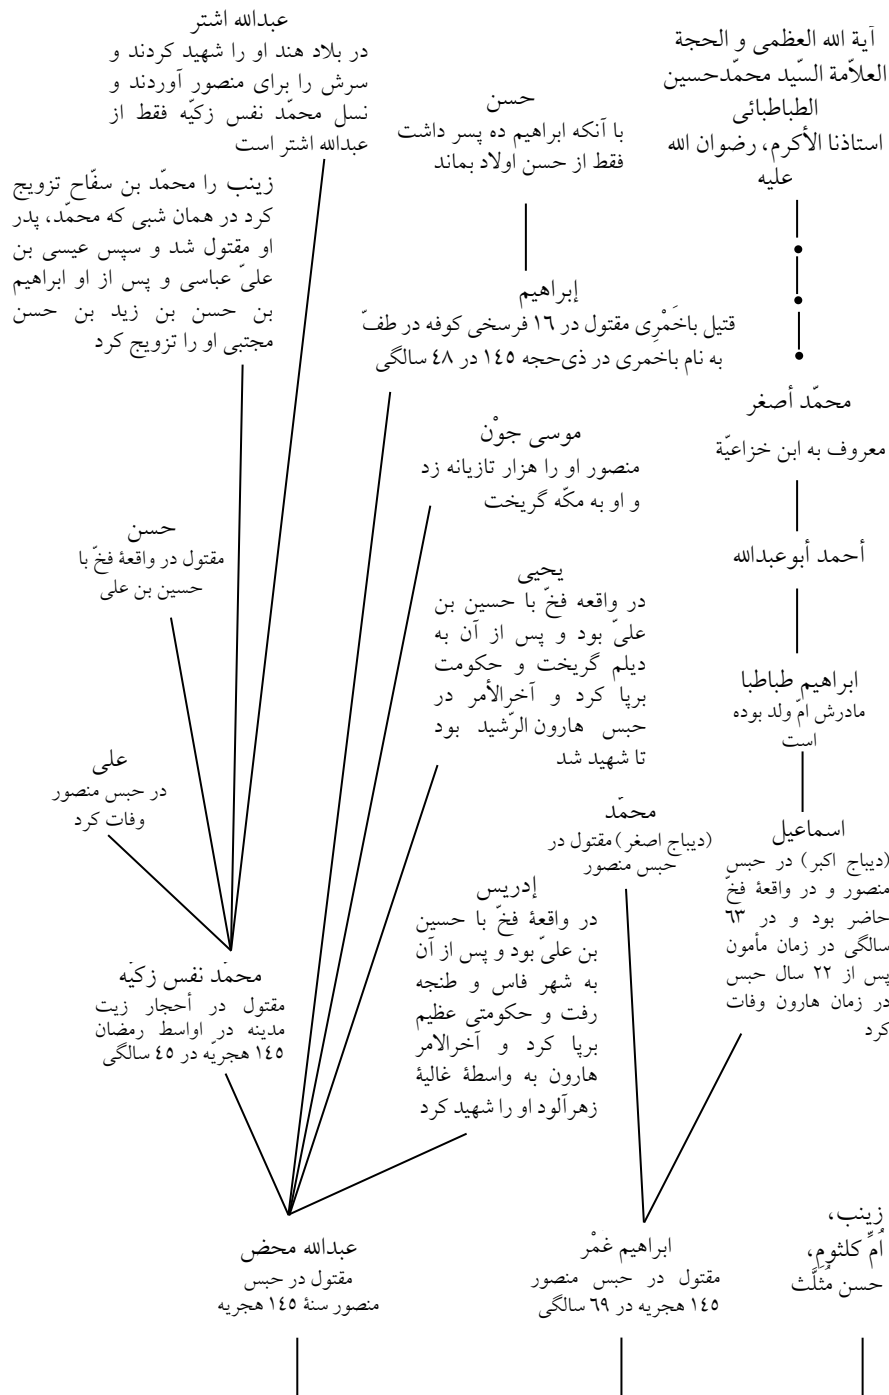 آیة الله العظمی و الحجة
العلاّمة السّید محمّدحسین
الطباطبائی
استاذنا الأکرم، رضوان الله
علیه
محمّد أصغر
معروف به ابن خزاعیّة
أحمد أبوعبدالله
ابراهیم طباطبا
مادرش امّ ولد بوده
است
اسماعیل
(دیباج اکبر) در حبس
منصور و در واقعۀ فخّ
حاضر بود و در ٦٣
سالگی در زمان مأمون
پس از ٢٢ سال حبس
در زمان هارون وفات
کرد
زینب،
اُمِّ کلثومِ،
حسن مُثلَّث
حسن
با آنکه ابراهیم ده پسر داشت
فقط از حسن اولاد بماند
إبراهیم
قتیل باخَمْرِی مقتول در ١٦ فرسخی کوفه در طفّ
به نام باخمری در ذی‌حجه ١٤٥ در ٤٨ سالگی
موسی جوْن
منصور او را هزار تازیانه زد
و او به مکّه گریخت
یحیی
در واقعه فخّ با حسین بن
علیّ بود و پس از آن به
دیلم گریخت و حکومت
برپا کرد و آخرالأمر در
حبس هارون الرّشید بود
تا شهید شد
محمّد
(دیباج اصغر) مقتول در
حبس منصور
إدریس
در واقعۀ فخّ با حسین
بن علیّ بود و پس از آن
به شهر فاس و طنجه
رفت و حکومتی عظیم
برپا کرد و آخرالامر
هارون به واسطۀ غالیۀ
زهرآلود او را شهید کرد
ابراهیم غَمْر
مقتول در حبس منصور
١٤٥ هجریه در ٦٩ سالگی
عبدالله اشتر
در بلاد هند او را شهید کردند و
سرش را برای منصور آوردند و
نسل محمّد نفس زکیّه فقط از
عبدالله اشتر است
زینب را محمّد بن سفّاح تزویج
کرد در همان شبی که محمّد، پدر
او مقتول شد و سپس عیسی بن
علیّ عباسی و پس از او ابراهیم
بن حسن بن زید بن حسن
مجتبی او را تزویج کرد
حسن
مقتول در واقعۀ فخّ با
حسین بن علی
علی
در حبس منصور
وفات کرد
محمّد نفس زکیّه
مقتول در أحجار زیت
مدینه در اواسط رمضان
١٤٥ هجریّه در ٤٥ سالگی
عبدالله محض
مقتول در حبس
منصور سنۀ ١٤٥ هجریه